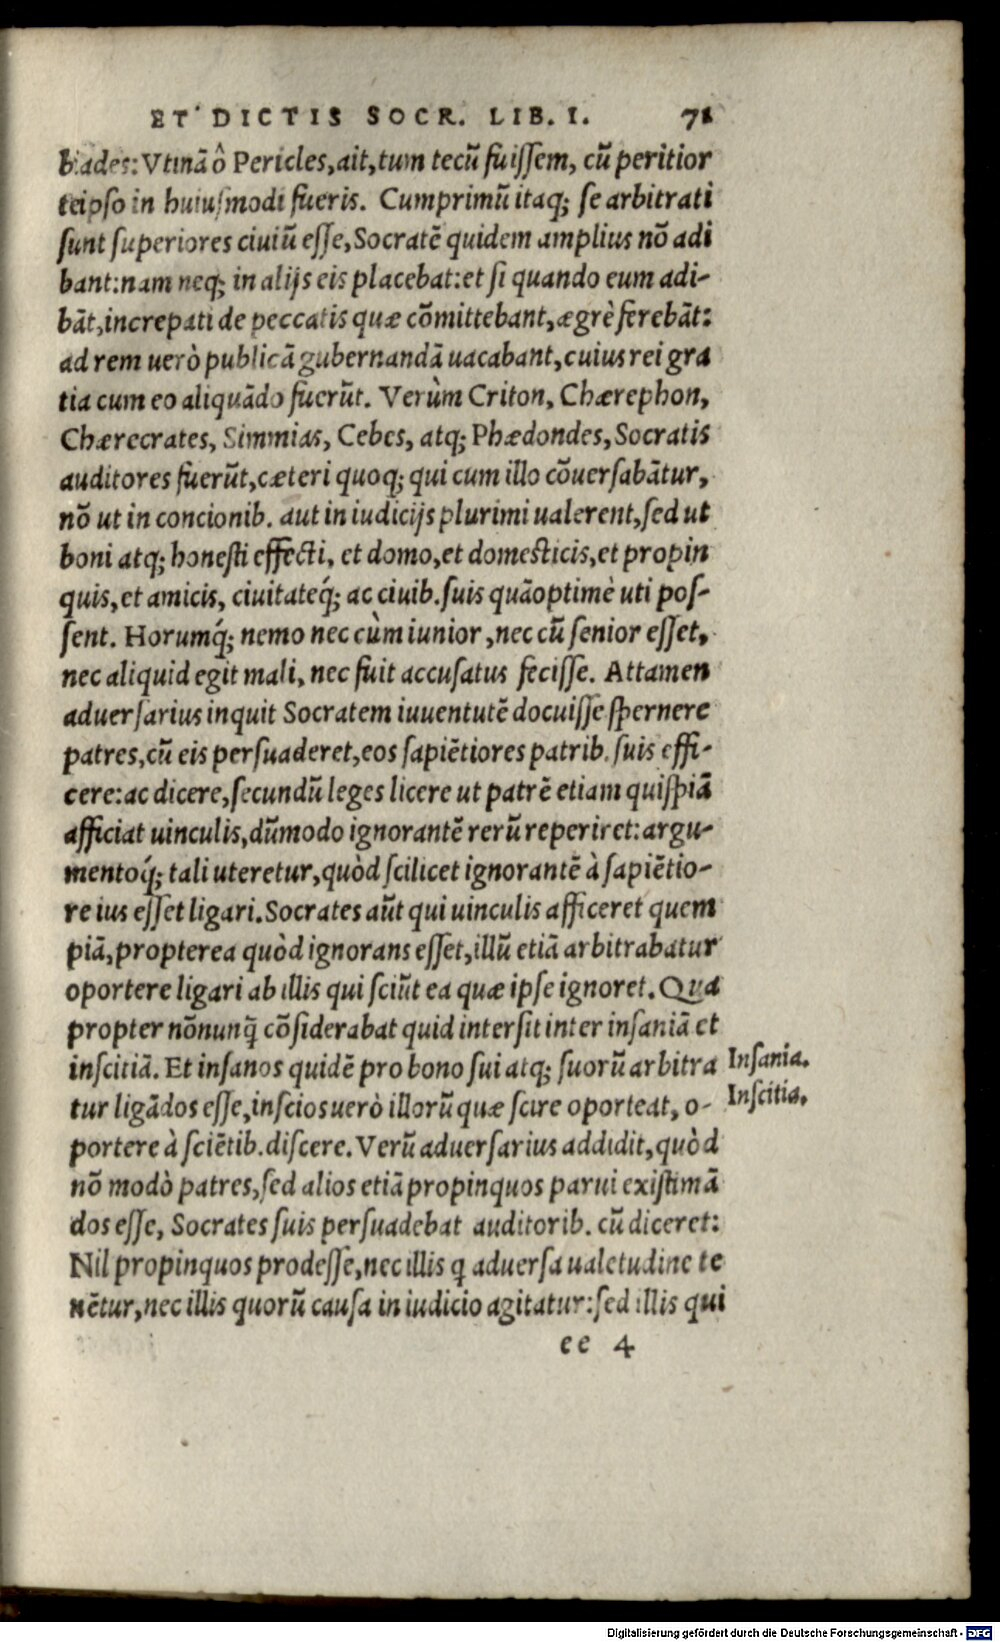 ET DICTIS SOCR. LIB. I. 71
biades: Vtinã ô Pericles, ait, tum tecũ fuiſſem, cũ peritior
teipſo in huiuſmodi fueris. Cumprimũ itaq; ſe arbitrati
ſunt ſuperiores ciuiũ eſſe, Socratẽ quidem amplius nõ adi
bant: nam neq; in alijs eis placebat: et ſi quando eum adi-
bãt, increpati de peccatis quæ cõmittebant, ægrè ferebãt:
ad rem uerò publicã gubernandã uacabant, cuius rei gra
tia cum eo aliquãdo fuerũt. Verùm Criton, Chærephon,
Chærecrates, Simmias, Cebes, atq; Phædondes, Socratis
auditores fuerũt, cæteri quoq; qui cum illo cõuerſabãtur,
nõ ut in concionib. aut in iudicijs plurimi ualerent, ſed ut
boni atq; honeſti effecti, et domo, et domeſticis, et propin
quis, et amicis, ciuitateq́; ac ciuib. ſuis quãoptimè uti poſ-
ſent. Horumq́; nemo nec cùm iunior, nec cũ ſenior eſſet,
nec aliquid egit mali, nec fuit accuſatus feciſſe. Attamen
aduerſarius inquit Socratem iuuentutẽ docuiſſe ſpernere
patres, cũ eis perſuaderet, eos ſapiẽtiores patrib. ſuis effi-
cere: ac dicere, ſecundũ leges licere ut patrẽ etiam quiſpiã
afficiat uinculis, dũmodo ignorantẽ rerũ reperiret: argu-
mentoq́; tali uteretur, quòd ſcilicet ignorantẽ à ſapiẽtio-
re ius eſſet ligari. Socrates aũt qui uinculis afficeret quem
piã, propterea quòd ignorans eſſet, illũ etiã arbitrabatur
oportere ligari ab illis qui ſciũt ea quæ ipſe ignoret. Qua
propter nõnunq̃ cõſiderabat quid interſit inter inſaniã et
inſcitiã. Et inſanos quidẽ pro bono ſui atq; ſuorũ arbitra
tur ligãdos eſſe, inſcios uerò illorũ quæ ſcire oporteat, o-
portere à ſciẽtib. diſcere. Verũ aduerſarius addidit, quòd
nõ modò patres, ſed alios etiã propinquos parui exiſtimã
dos eſſe, Socrates ſuis perſuadebat auditorib. cũ diceret:
Nil propinquos prodeſſe, nec illis q̃ aduerſa ualetudine te
nẽtur, nec illis quorũ cauſa in iudicio agitatur: ſed illis qui
ee 4
Inſania.
Inſcitia.
Digitalisierung gefördert durch die Deutsche Forschungsgemeinschaft - DFG